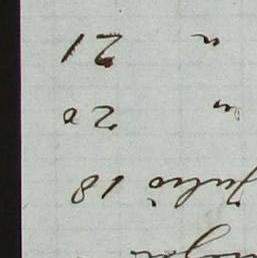 Julio 18
" 20
" 21